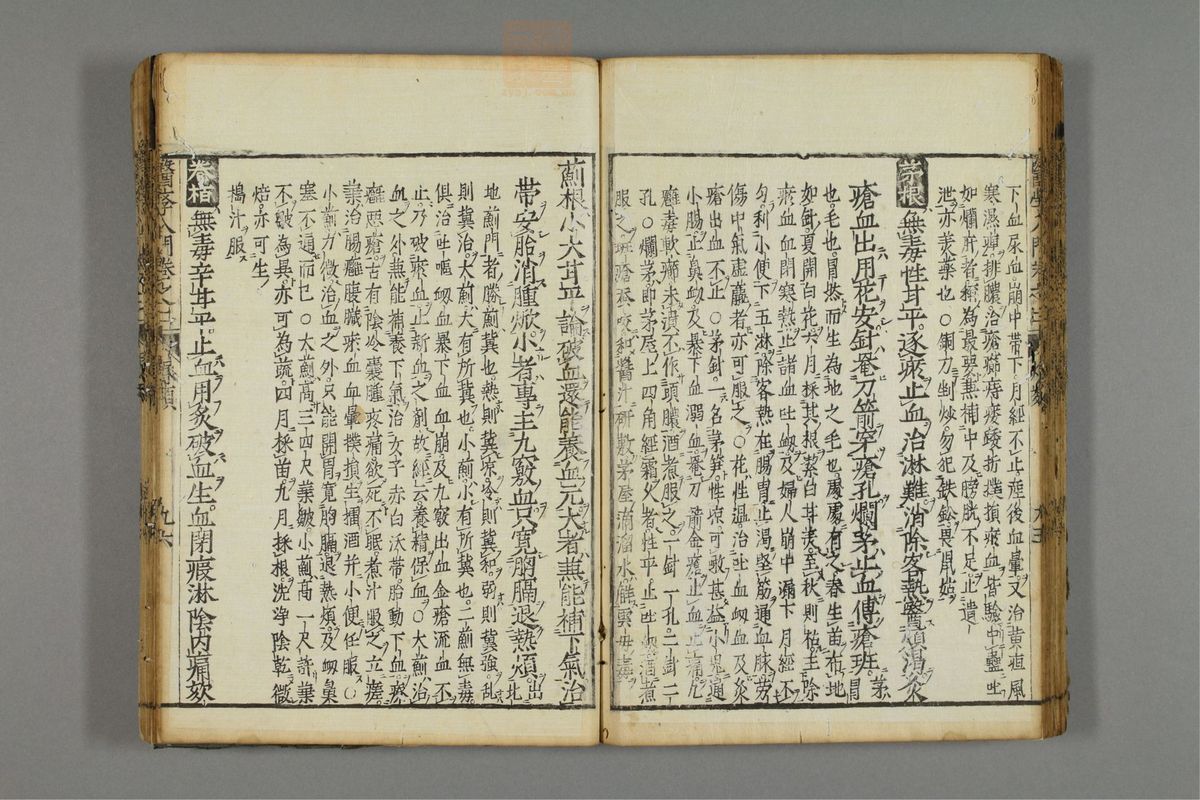 下血尿血崩中帶下月經不止產後血暈又治黃疸風
寒濕痺排膿治瘡癤痔痿躄折撲損瘀血皆驗中蠱吐
如爛肝者極為最要無補中及膀胱不足止遺
泄亦要藥也○銅刀剉炒勿犯鉄鉛畏鼠姑
茅根無毒性甘平逐瘀止血治淋難消除客熱驚煩渴灸
瘡血出用花安針菴刀箭穿瘡孔爛茅止血傅瘡班茅冒
也毛也冒然而生為地之毛也處處有之春生苗布地
如針夏開白花六月採其根潔白甘美至秋則枯主除
瘀血血閉寒熱止諸血吐衂及婦人崩中漏下月經不
勻利小便下五淋除客熱在腸胃止渴堅筋通血脉勞
傷中氣虛羸者亦可服之○花性溫治吐血衂血及灸
瘡出血不止○茅針一名茅笋性凉可噉甚益小兒通
小腸止鼻衂及暴下血溺血菴刀箭金瘡止血止痛凡
癰毒軟癤未潰不作頭膿酒煮服之一針一孔二針二
孔○爛茅即茅屋上四角經霜火者性平止吐衂酒煮
服之班瘡和醬汁研敷茅屋滴溜水能雲母毒
薊根小大甘平論破血還能養血元大者兼能補下氣治
帶安胎消腫焮小者專主九竅血只寬胸膈退熱煩出北
地薊門者勝薊冀也熱則冀凉冷則冀和弱則冀強乱
則冀治大薊大有所冀也小薊小有所冀也二薊無毒
俱治吐嘔衂血暴下血血崩及九竅出血金瘡流血不
止乃破瘀血止新血之劑故經云養精保血○大薊治
血之外兼能補養下氣治女子赤白沃帶胎動下血瘀
癰惡瘡古有陰冷囊腫疼痛欲死不眠煮汁服之立瘥
葉治腸癰腹臟瘀血血暈撲損生擂酒并小便任服○
小薊力微治血之外只能開胃寬胸膈退熱煩及衂臭
塞不通而已○大薊高三四尺葉皺小薊高一尺許葉
不皺為異亦可為蔬四月採苗九月採根洗淨陰乾微
焙亦可生
搗汁服
卷栢無毒辛甘平止血用炙破血生血閉瘕淋陰內痛欬